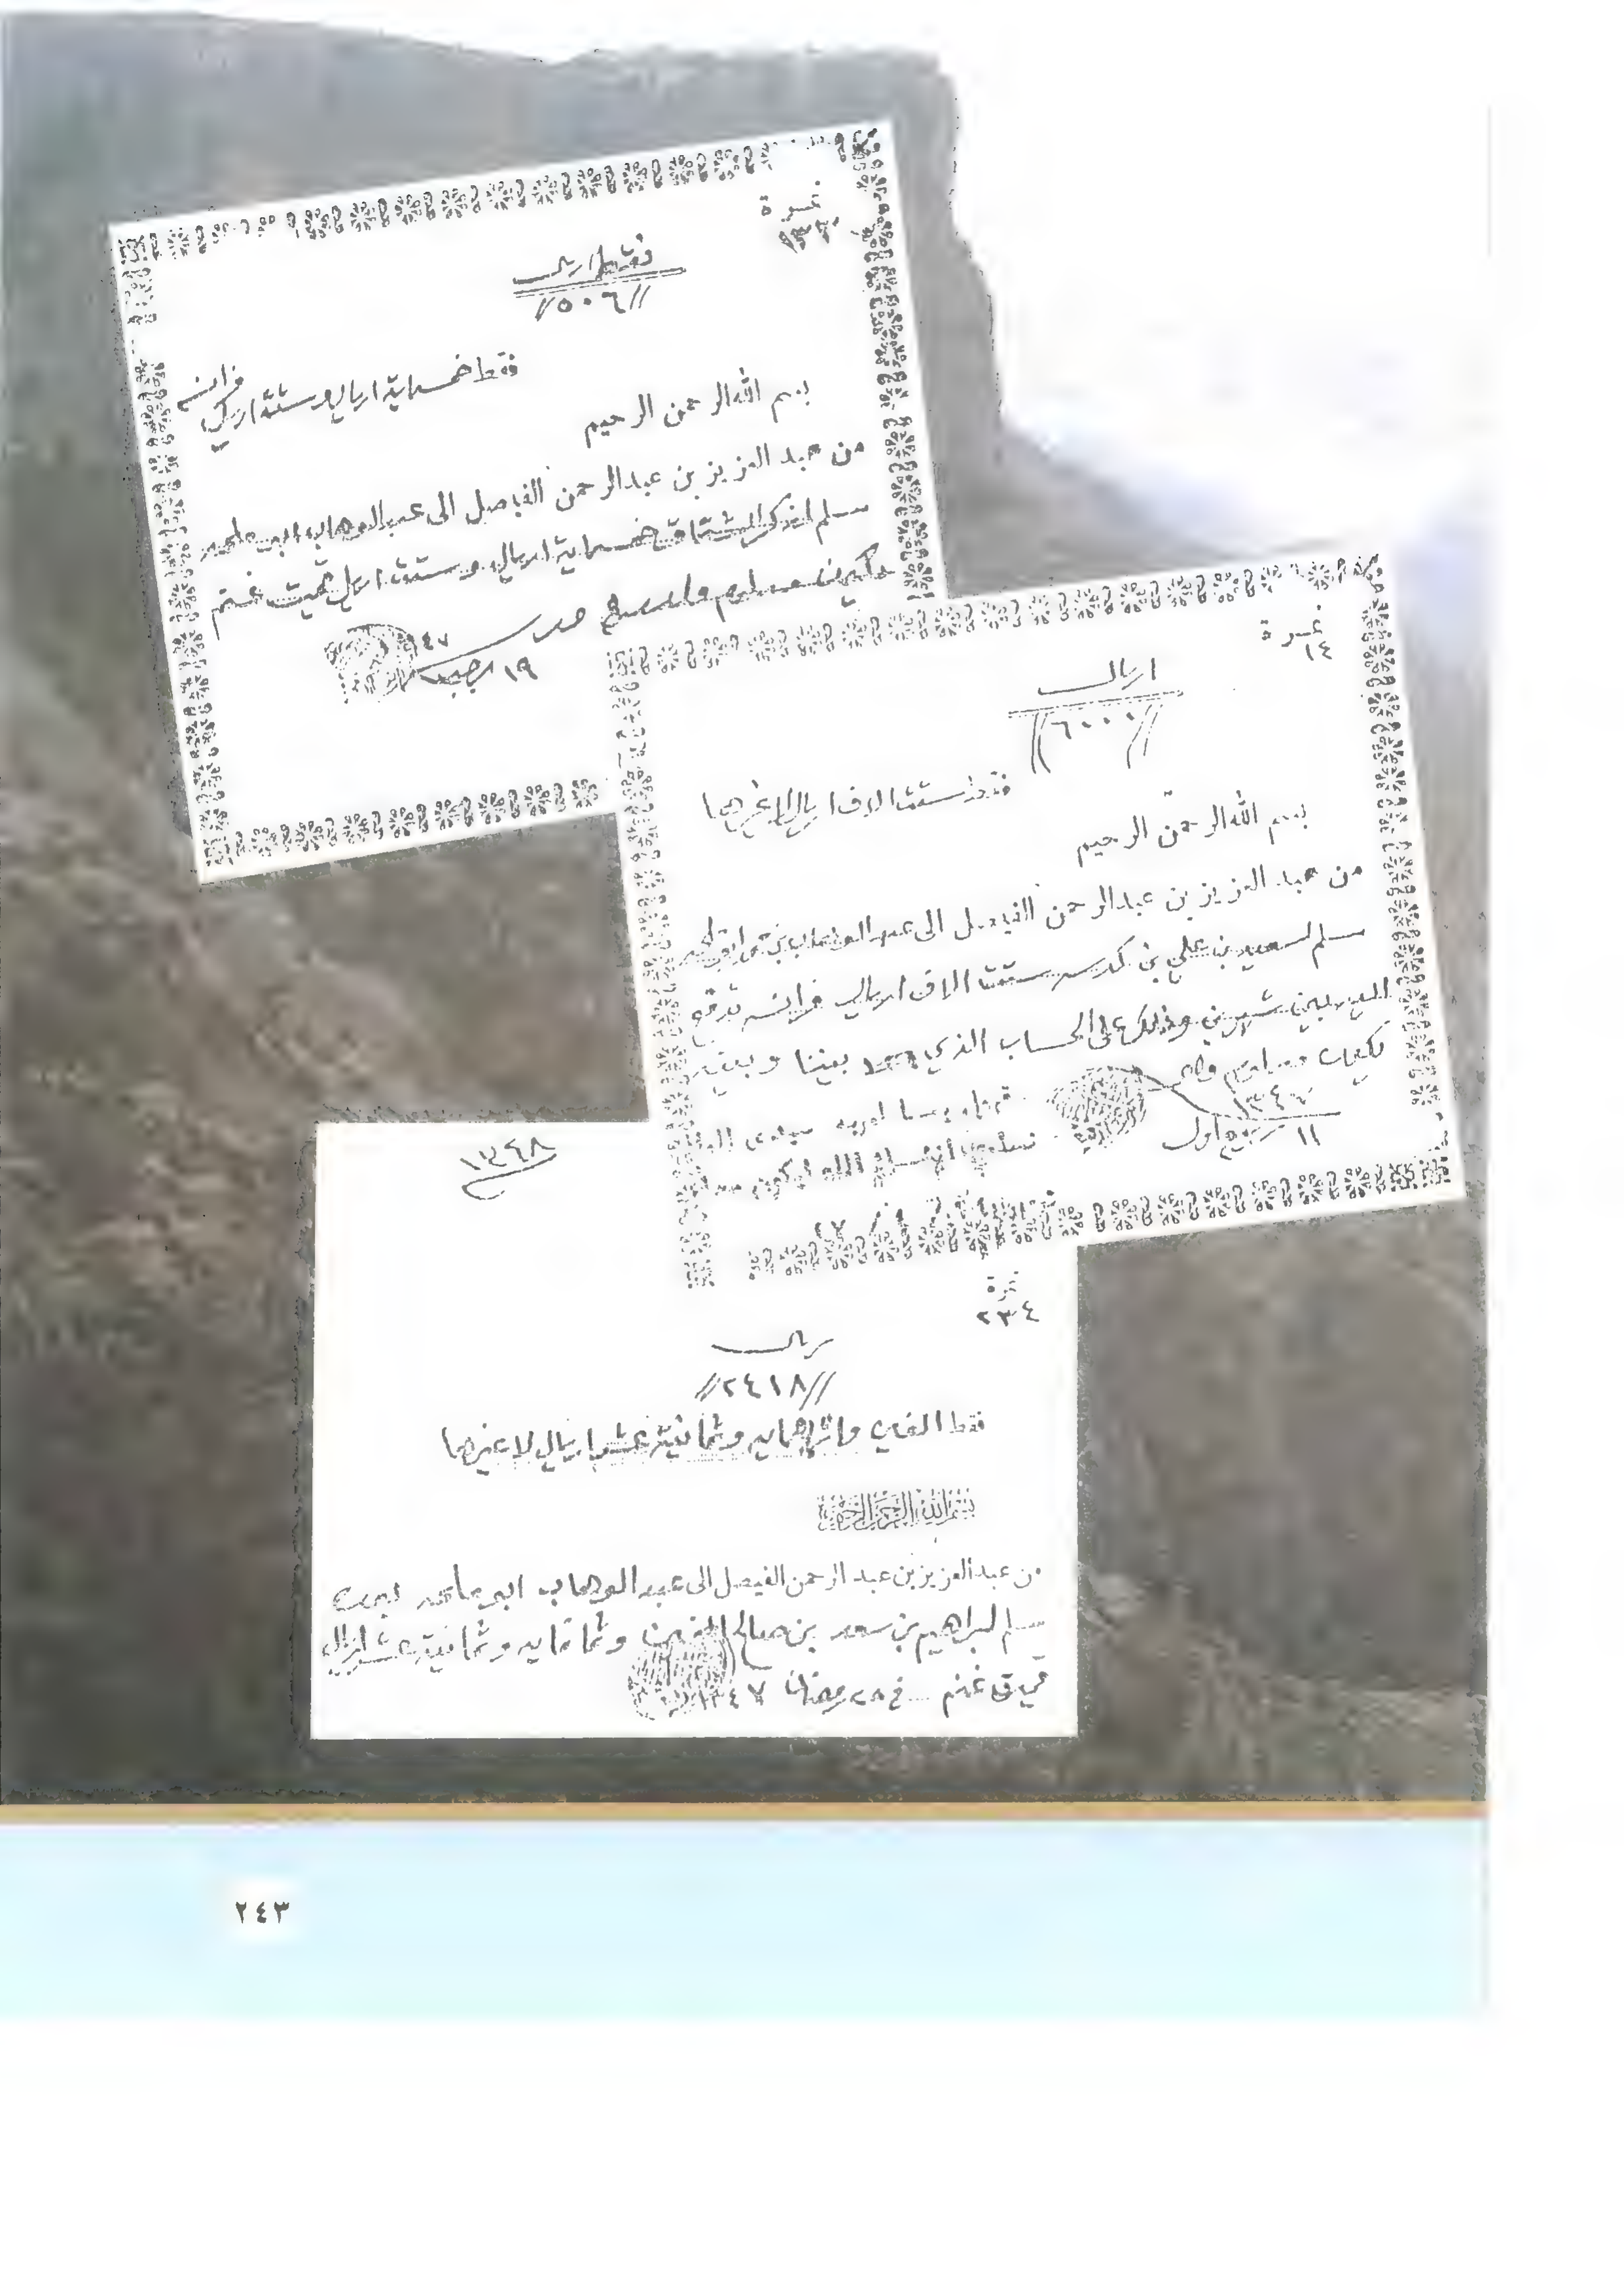 نمرة
فقط اريال
//٥٠٦//
فقط خمسماية اريال وستة اريل فرانسه
بسم الله الرحمن الرحيم
من عبد العزيز بن عبدالرحمن الفيصل الى عبد الوهاب ابو ملحه
سلم خمسماية اريال وستة اريل قيمت غنم
١٩ رجب ٤٧
نمرة
١٤
اريال
//٦٠٠٠//
فقط ستة الاف اريال لا غيرها
بسم الله الرحمن الرحيم
من عبد العزيز بن عبدالرحمن الفيصل الى عبد الوهاب بن محمد ابو ملحه
سلم لسعيد بن علي بن كدسه ستة الاف اريال فرانسه تدفع
اليه بين شهرين وذلك على الحساب الذي بيننا وبينه
يكون معلوم
١١ ربيع اول
١٣٤٨
نمرة
٢٣٤
ريال
//٢٤١٨//
فقط الفين واربعمايه وثمانية عشر اريال لا غيرها
بسم الله الرحمن الرحيم
من عبد العزيز بن عبد الرحمن الفيصل الى عبد الوهاب ابو ملحه
سلم لابراهيم بن سعد بن صالح الفين وثمانية عشر اريال
غنم في ٢٨ رمضان ١٣٤٧
٢٤٣